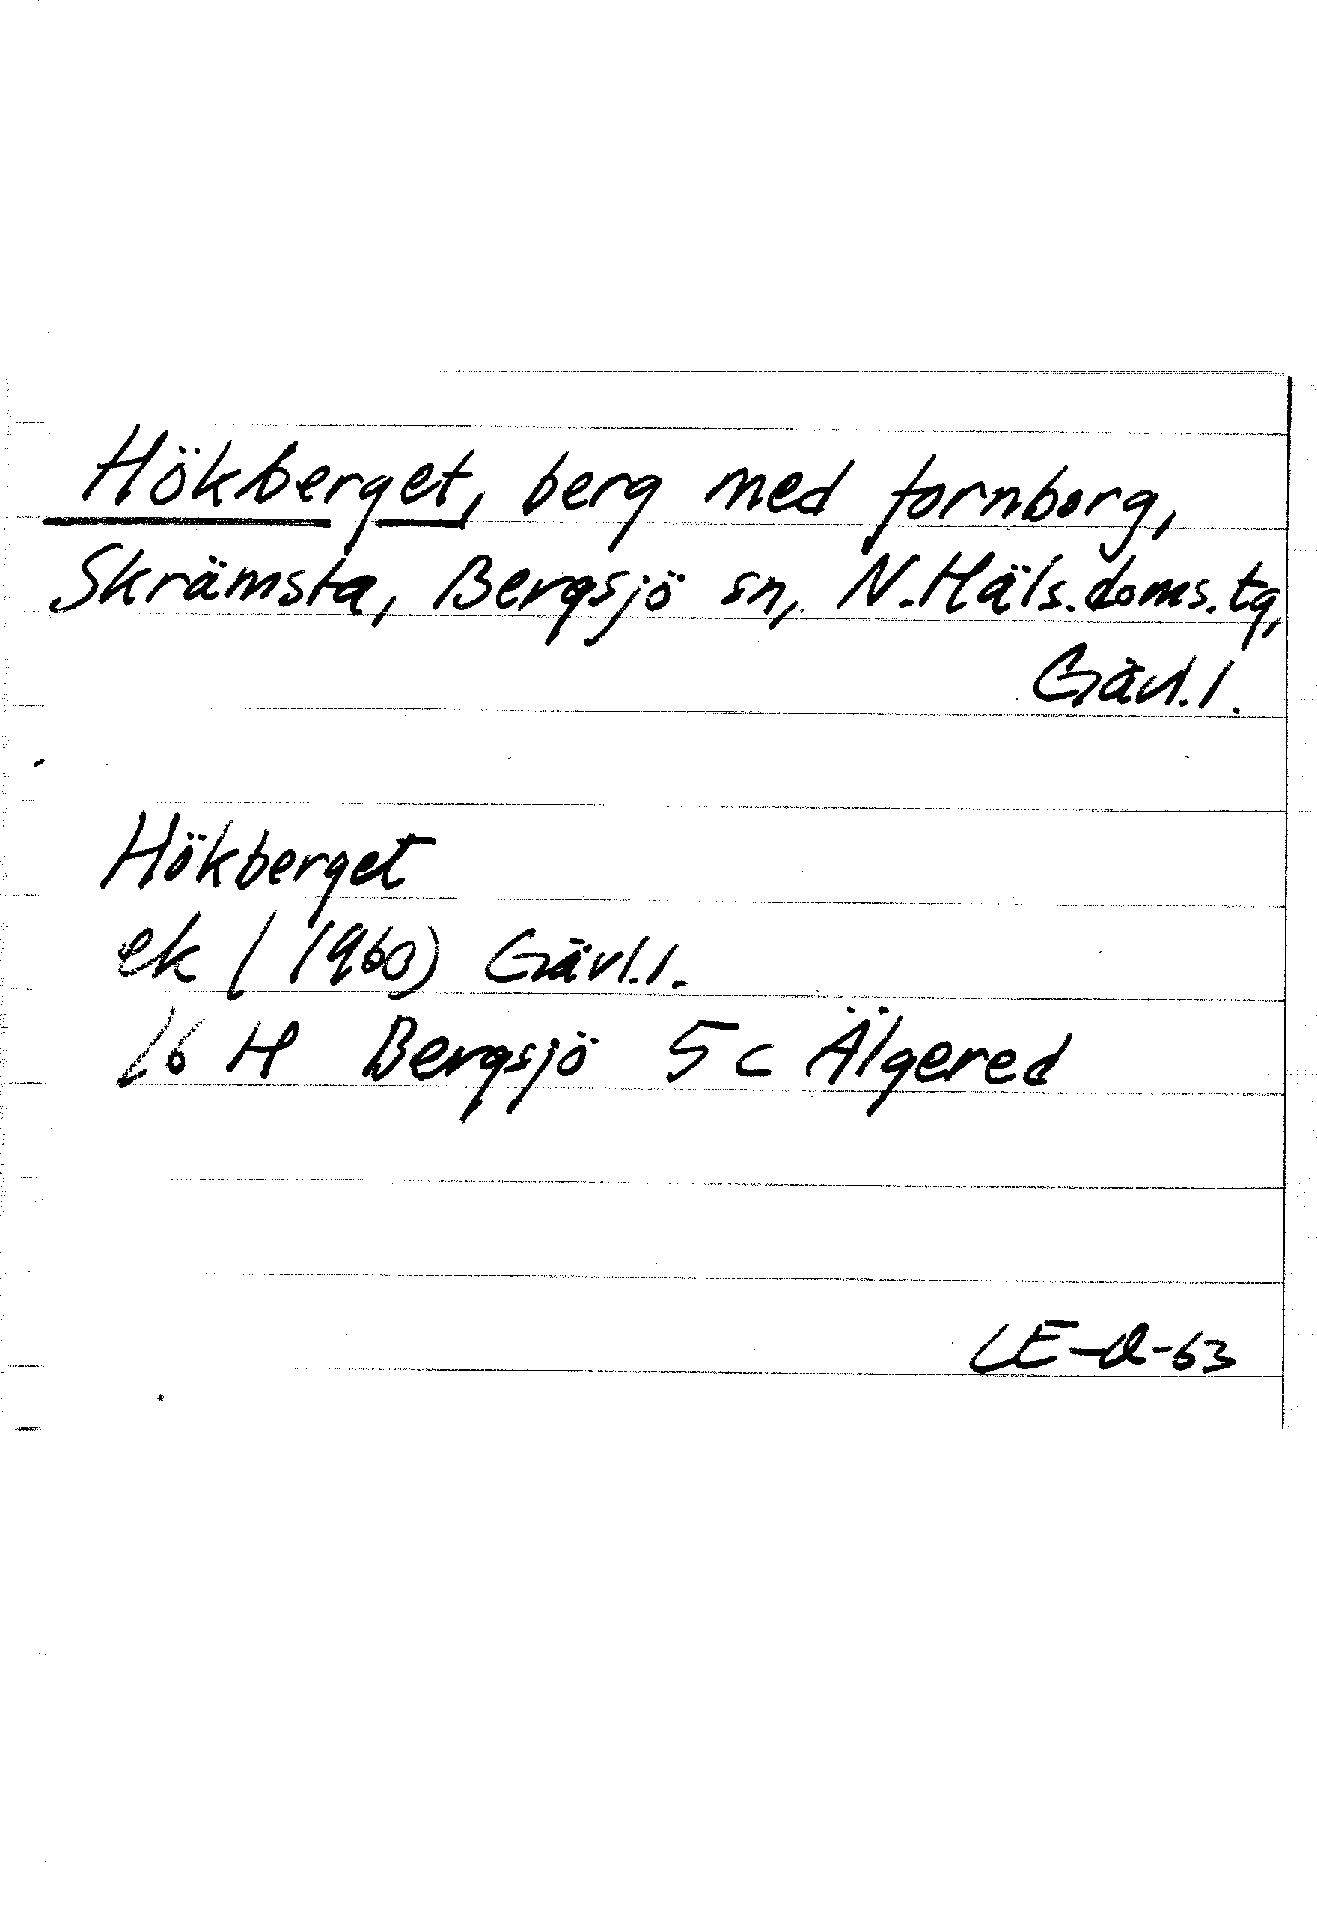 Hökberget, berg med fornborg,
Skrämsta, Bergsjö sn, N.Häls.doms.tg,
Gävl.l.
Hökberget
ek (1960) Gävl.l.
16 H Bergsjö 5 c Älgered
LE-Q-63